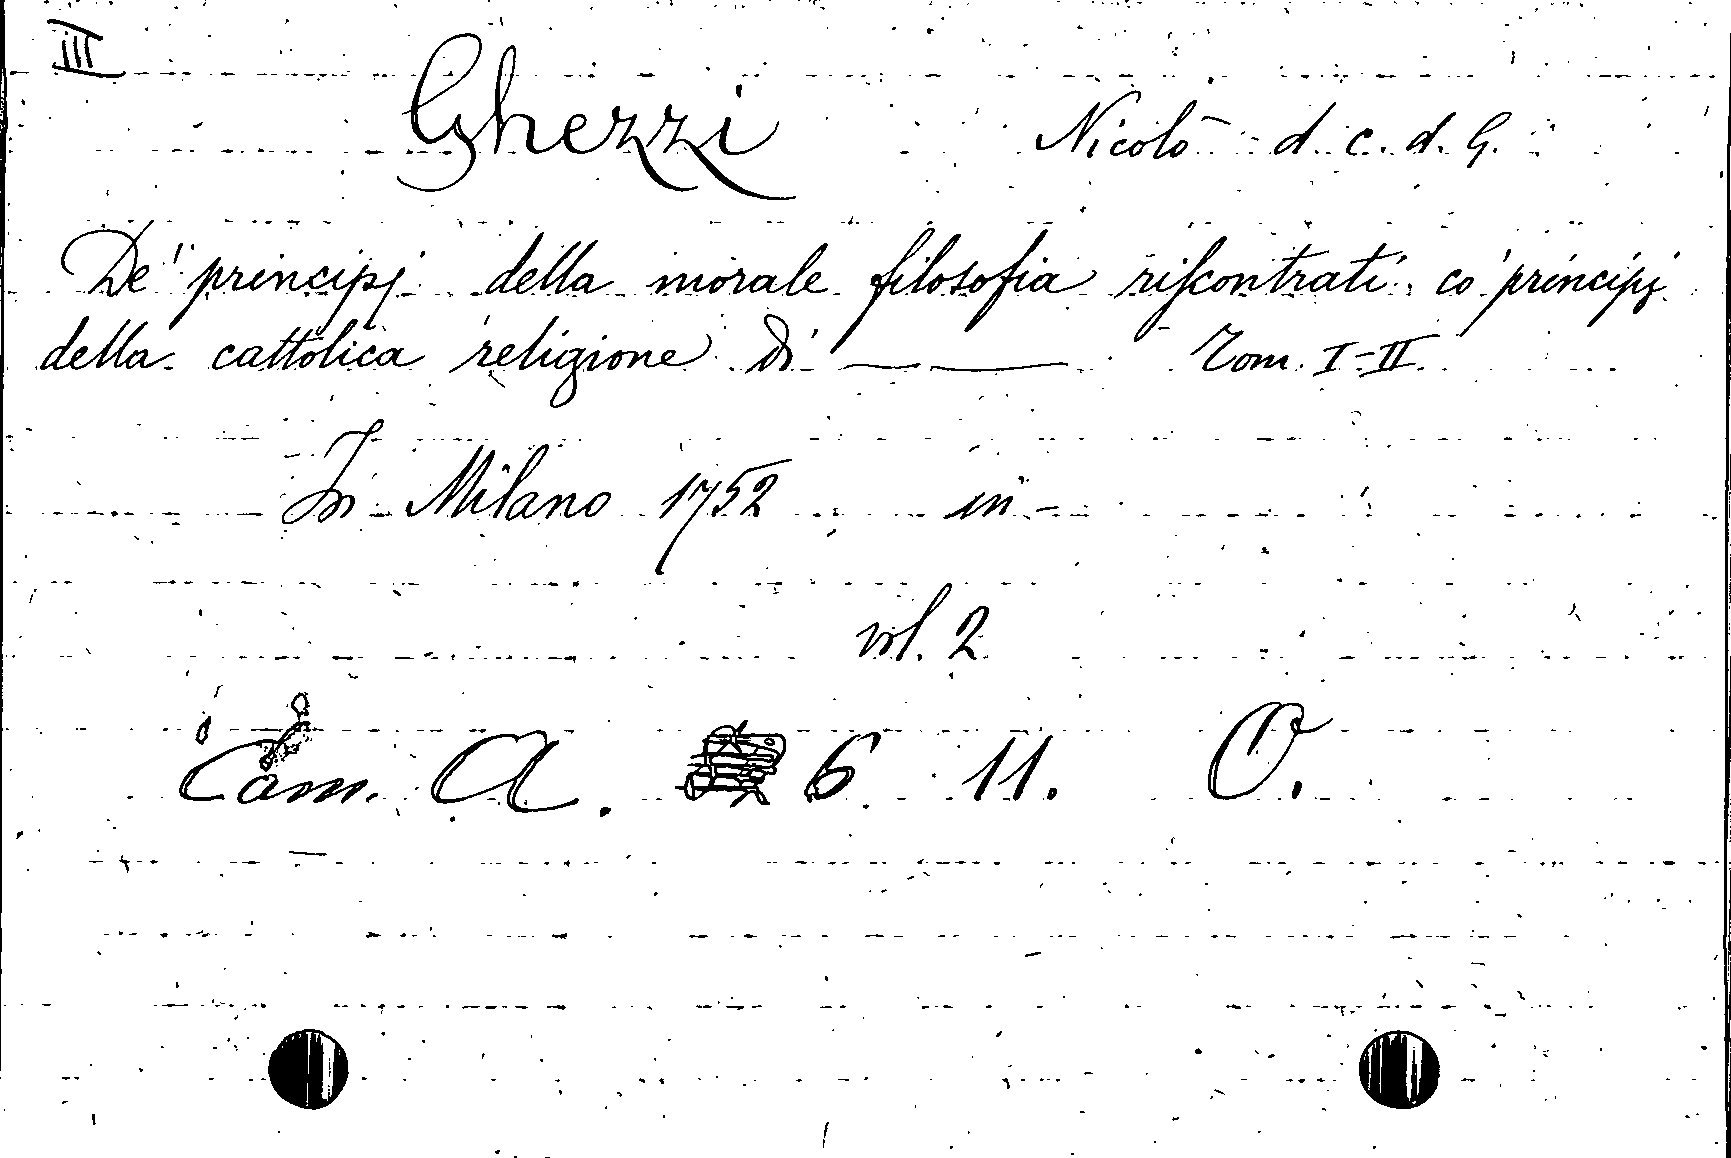 III
Ghezzi Nicolò d. c. d. G.
De' principj della morale filosofia riscontrati co' principj
della cattolica religione di — — Tom. I-II
In Milano 1752 in
vol. 2
Cam. A. 6 11. O.